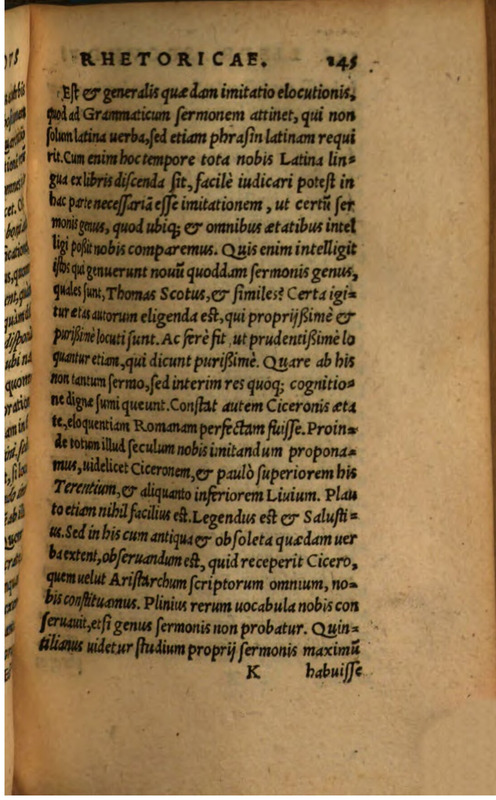 RHETORICAE. 145
Est & generalis quædam imitatio elocutionis,
quod ad Grammaticum sermonem attinet, qui non
solum latina uerba, sed etiam phrasin latinam requi
rit. Cum enim hoc tempore tota nobis Latina lin=
gua ex libris discenda sit, facilè iudicari potest in
hac parte necessariã esse imitationem, ut certũ ser
monis genus, quod ubiq; & omnibus ætatibus intel
ligi poßit nobis comparemus. Quis enim intelligit
istos qui genuerunt nouũ quoddam sermonis genus,
quales sunt, Thomas Scotus, & similes? Certa igi=
tur ætas autorum eligenda est, qui proprijßimè &
purißimè locuti sunt. Ac ferè fit, ut prudentißimè lo
quantur etiam, qui dicunt purißimè. Quare ab his
non tantum sermo, sed interim res quoq; cognitio=
ne dignæ sumi queunt. Constat autem Ciceronis æta
te, eloquentiam Romanam perfectam fuisse. Proin=
de totum illud seculum nobis imitandum propona=
mus, uidelicet Ciceronem, & paulò superiorem his
Terentium, & aliquanto inferiorem Liuium. Plau
to etiam nihil facilius est. Legendus est & Salusti=
us. Sed in his cum antiqua & obsoleta quædam uer
ba extent, obseruandum est, quid receperit Cicero,
quem uelut Aristarchum scriptorum omnium, no=
bis constituamus. Plinius rerum uocabula nobis con
seruauit, etsi genus sermonis non probatur. Quin=
tilianus uidetur studium proprij sermonis maximũ
K habuisse